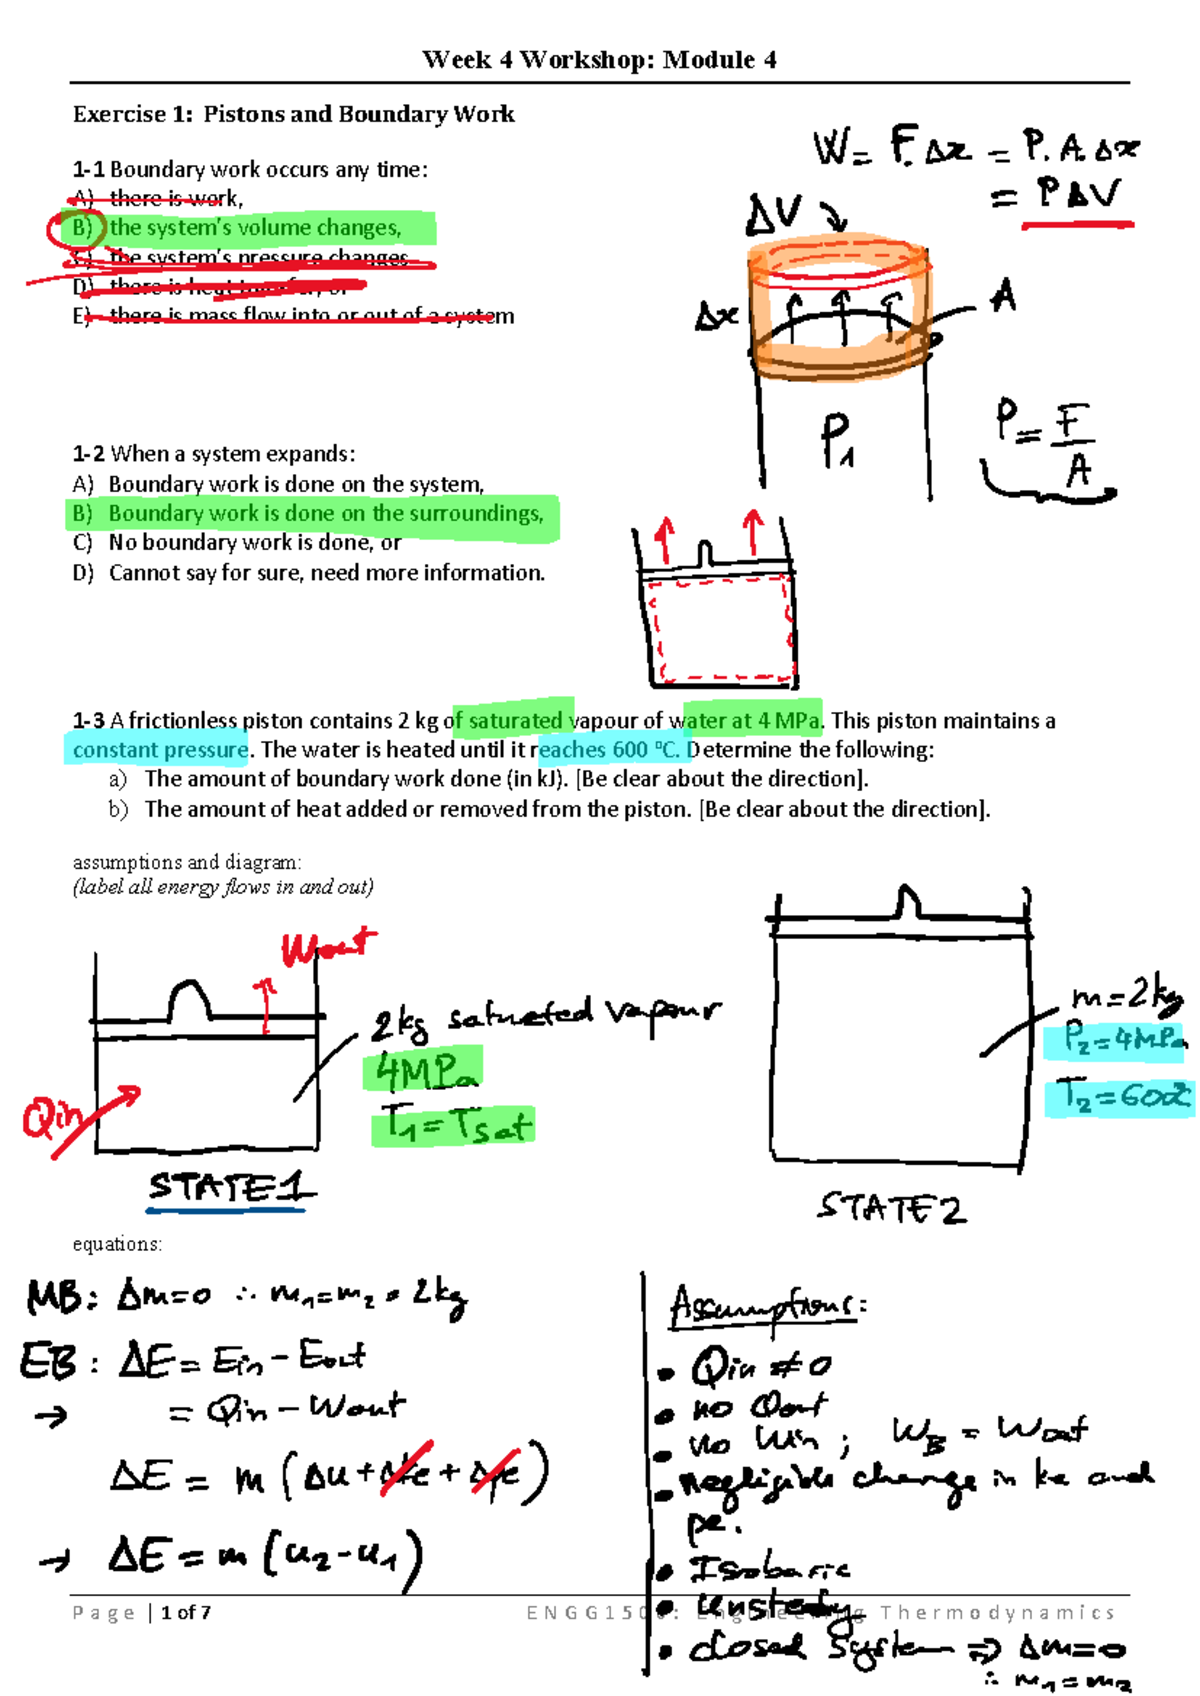 Week 4 Workshop: Module 4
Exercise 1: Pistons and Boundary Work
W = F. Δx = P. A. Δx
= P ΔV
1-1 Boundary work occurs any time:
A) there is work,
B) the system's volume changes,
C) the system's pressure changes
D) there is heat transfer, or
E) there is mass flow into or out of a system
ΔV
Δx
A
P1
P = F
A
1-2 When a system expands:
A) Boundary work is done on the system,
B) Boundary work is done on the surroundings,
C) No boundary work is done, or
D) Cannot say for sure, need more information.
1-3 A frictionless piston contains 2 kg of saturated vapour of water at 4 MPa. This piston maintains a
constant pressure. The water is heated until it reaches 600 °C. Determine the following:
a) The amount of boundary work done (in kJ). [Be clear about the direction].
b) The amount of heat added or removed from the piston. [Be clear about the direction].
assumptions and diagram:
(label all energy flows in and out)
Wout
2kg saturated vapour
4MPa
T1 = Tsat
Qin
STATE 1
m = 2kg
P2 = 4MPa
T2 = 600°C
STATE 2
equations:
MB: Δm=0 ∴ m1=m2 = 2kg
EB: ΔE = Ein - Eout
→ = Qin - Wout
ΔE = m (Δu + Δke + Δpe)
→ ΔE = m (u2-u1)
Assumptions:
• Qin ≠ 0
• no Qout
• no Win ; WB = Wout
• negligible change in ke and
pe.
• Isobaric
• unsteady
• closed system ⇒ Δm=0
∴ m1=m2
Page | 1 of 7
ENGG1500: Engineering Thermodynamics